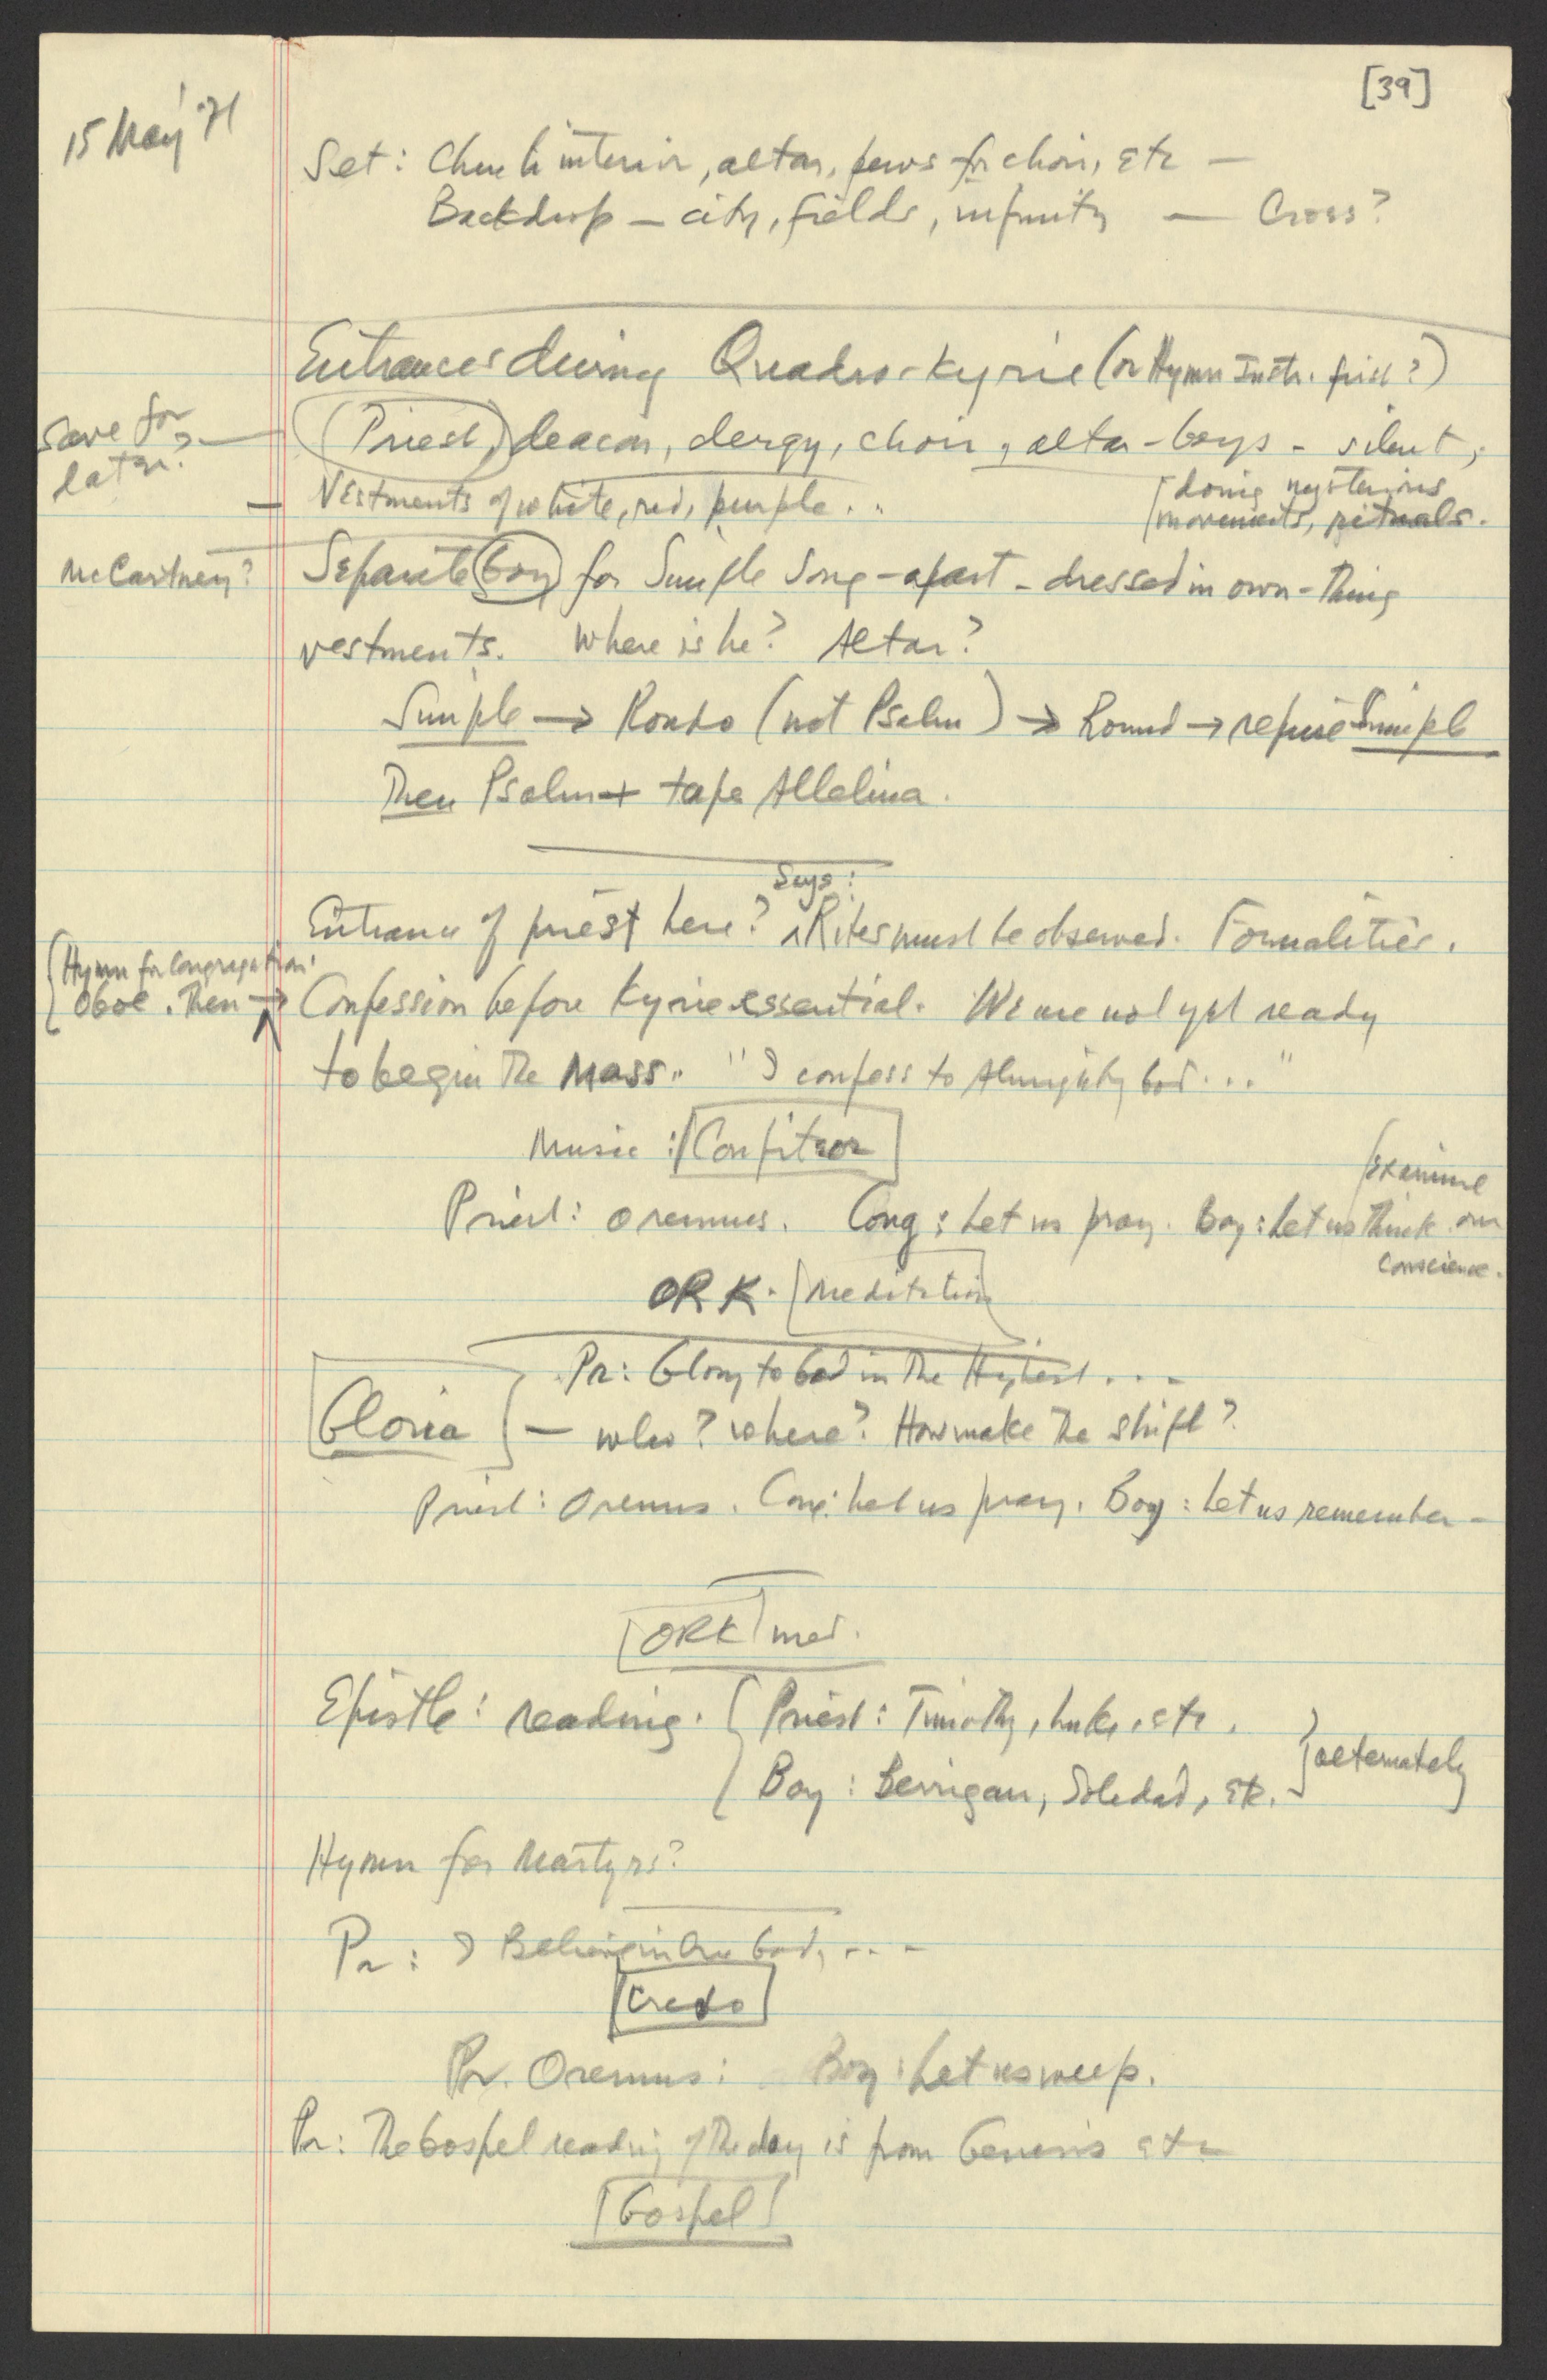 [39]
15 May '71
Set: Church interior, altar, pews for choir, etc —
Backdrop — city, fields, infinity — Cross?
Entrances during Quadro-Kyrie (or Hymn Instr. first?)
save for later?
(Priest,) deacon, clergy, choir, altar-boys - silent,
doing mysterious movements, rituals.
— Vestments of white, red, purple...
McCartney?
Separate boy for Simple Song - apart - dressed in own-thing
vestments. Where is he? Altar?
Simple → Rondo (not Psalm) → Round → reprise Simple
Then Psalm + tape Alleluia.
Says:
Entrance of priest here? ^Rites must be observed. Formalities.
Hymn for Congregation.
Oboe. Then → Confession before Kyrie essential. We are not yet ready
to begin the Mass. "I confess to Almighty God..."
Music: Confiteor
Priest: Oremus. Cong: Let us pray. Boy: Let us think. examine our conscience.
ORK. Meditation
Pr: Glory to God in the Highest...
Gloria — who? where? How make the shift?
Priest: Oremus. Cong: Let us pray. Boy: Let us remember —
ORK med.
Epistle: reading. Priest: Timothy, Luke, etc.
Boy: Berrigan, Soledad, etc. alternately
Hymn for Martyrs?
Pr: I Believe in One God, ...
Credo
Pr. Oremus: Boy: Let us weep.
Pr: The Gospel reading of the day is from Genesis etc
Gospel